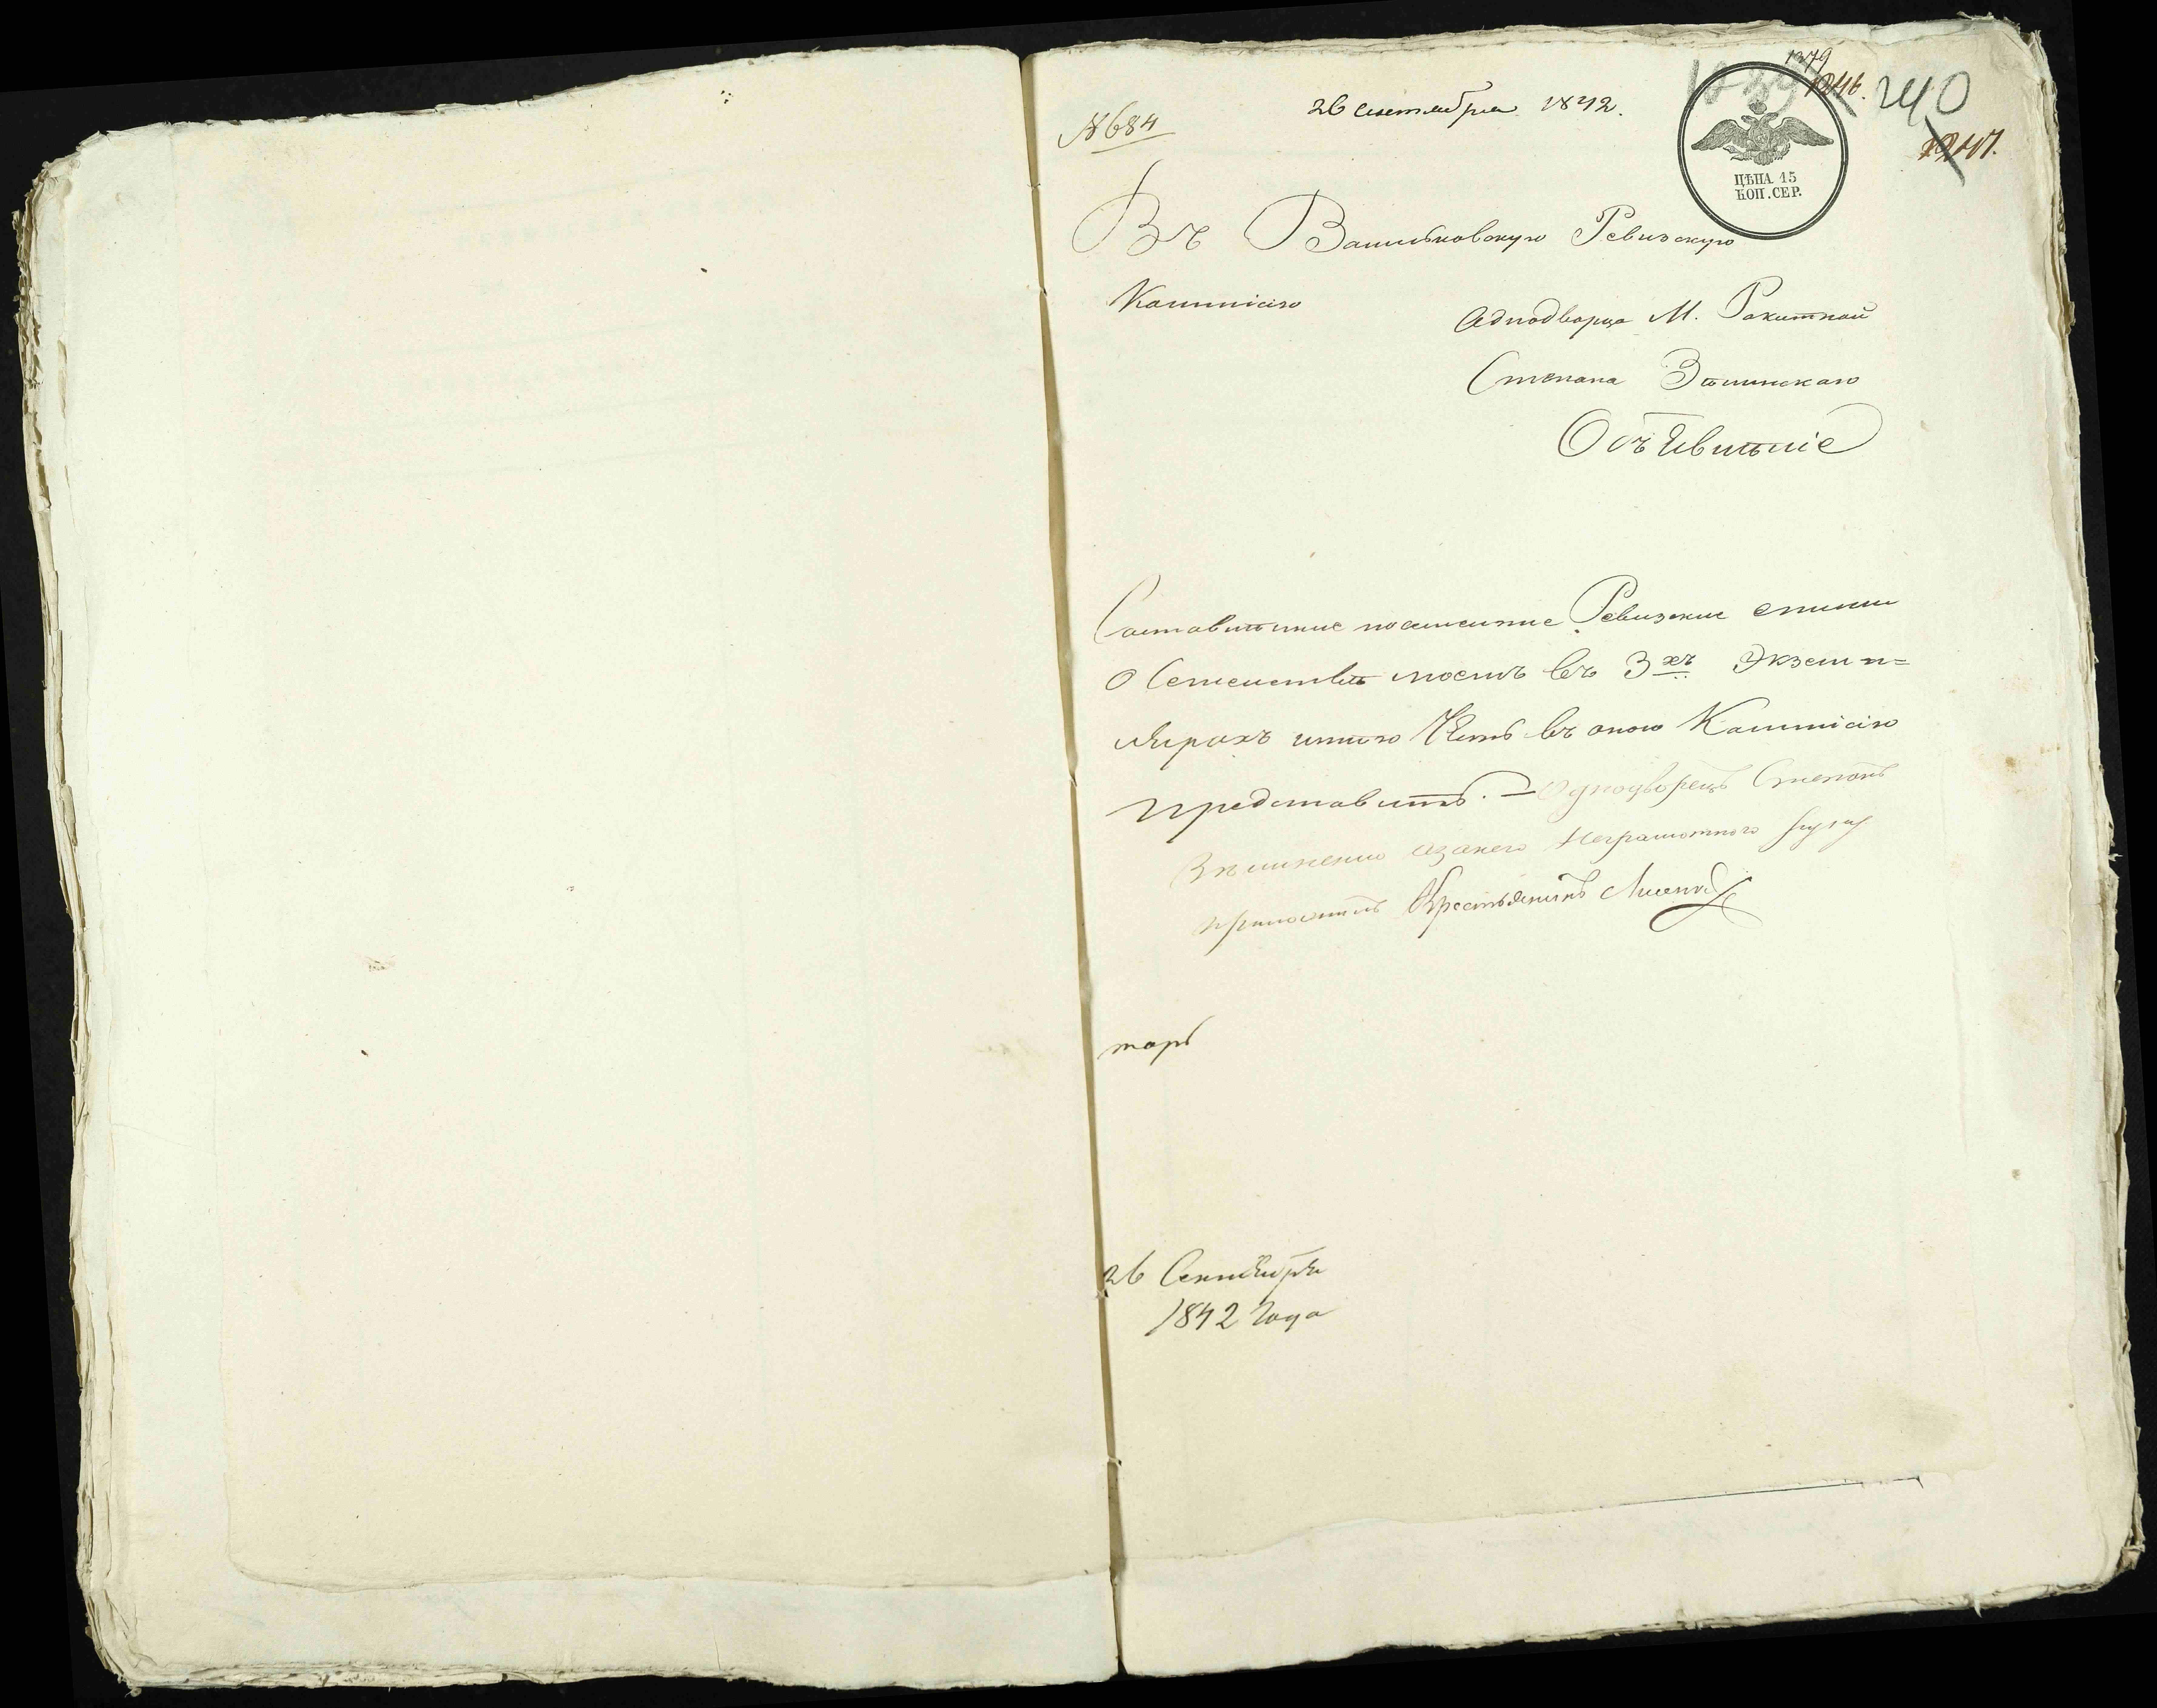 № 684
26 сентября 1842.
1379
1246.
240
1247.
ЦѢНА 15
КОП. СЕР.
Въ Васильковскую Ревизскую
Коммисію
Однодворца М. Ракитной
Степана Зѣлинскаго
Объявленіе
Составленные Ревизские
о Семействѣ моемъ въ 3хъ Экземп=
лярахъ имѣю честь въ оною Коммисію
представить. – Однодворецъ Степанъ
неграмотного руку
приложилъ Крестьянинъ
26 Сентября
1842 года